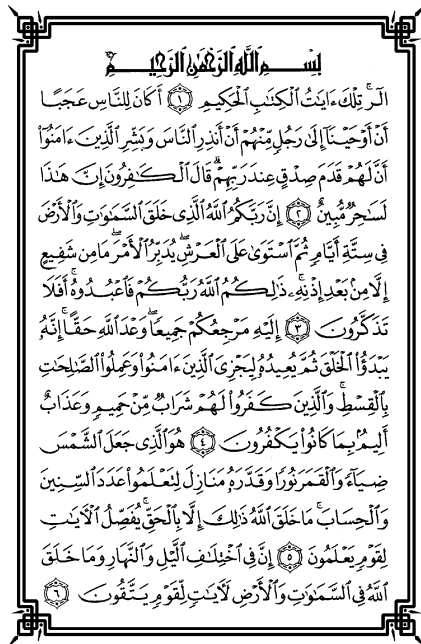 بِسْمِ اللَّهِ الرَّحْمَٰنِ الرَّحِيمِ
الٓر ۚ تِلْكَ ءَايَٰتُ الْكِتَٰبِ الْحَكِيمِ ١ أَكَانَ لِلنَّاسِ عَجَبًا
أَنْ أَوْحَيْنَآ إِلَىٰ رَجُلٍ مِّنْهُمْ أَنْ أَنذِرِ النَّاسَ وَبَشِّرِ الَّذِينَ ءَامَنُوٓا۟
أَنَّ لَهُمْ قَدَمَ صِدْقٍ عِندَ رَبِّهِمْ ۗ قَالَ الْكَٰفِرُونَ إِنَّ هَٰذَا
لَسَٰحِرٌ مُّبِينٌ ٢ إِنَّ رَبَّكُمُ اللَّهُ الَّذِى خَلَقَ السَّمَٰوَٰتِ وَالْأَرْضَ
فِى سِتَّةِ أَيَّامٍ ثُمَّ اسْتَوَىٰ عَلَى الْعَرْشِ ۖ يُدَبِّرُ الْأَمْرَ ۖ مَا مِن شَفِيعٍ
إِلَّا مِنۢ بَعْدِ إِذْنِهِۦ ۚ ذَٰلِكُمُ اللَّهُ رَبُّكُمْ فَاعْبُدُوهُ ۚ أَفَلَا
تَذَكَّرُونَ ٣ إِلَيْهِ مَرْجِعُكُمْ جَمِيعًا ۖ وَعْدَ اللَّهِ حَقًّا ۚ إِنَّهُۥ
يَبْدَؤُا۟ الْخَلْقَ ثُمَّ يُعِيدُهُۥ لِيَجْزِىَ الَّذِينَ ءَامَنُوا۟ وَعَمِلُوا۟ الصَّٰلِحَٰتِ
بِالْقِسْطِ ۚ وَالَّذِينَ كَفَرُوا۟ لَهُمْ شَرَابٌ مِّنْ حَمِيمٍ وَعَذَابٌ
أَلِيمٌۢ بِمَا كَانُوا۟ يَكْفُرُونَ ٤ هُوَ الَّذِى جَعَلَ الشَّمْسَ
ضِيَآءً وَالْقَمَرَ نُورًا وَقَدَّرَهُۥ مَنَازِلَ لِتَعْلَمُوا۟ عَدَدَ السِّنِينَ
وَالْحِسَابَ ۚ مَا خَلَقَ اللَّهُ ذَٰلِكَ إِلَّا بِالْحَقِّ ۚ يُفَصِّلُ الْءَايَٰتِ
لِقَوْمٍ يَعْلَمُونَ ٥ إِنَّ فِى اخْتِلَٰفِ الَّيْلِ وَالنَّهَارِ وَمَا خَلَقَ
اللَّهُ فِى السَّمَٰوَٰتِ وَالْأَرْضِ لَءَايَٰتٍ لِّقَوْمٍ يَتَّقُونَ ٦